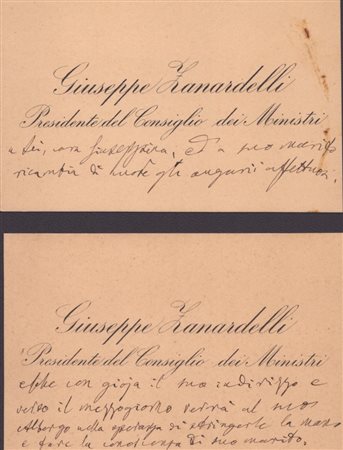 Giuseppe Zanardelli
Presidente del Consiglio dei Ministri
a Lei, cara Giuseppina, ed a suo marito
ricambia di cuore gli augurii affettuosi.
Giuseppe Zanardelli
Presidente del Consiglio dei Ministri
ebbe con gioja il suo indirizzo e
verso il mezzogiorno verrà al suo
Albergo nella speranza di stringerle la mano
e fare la conoscenza di suo marito.